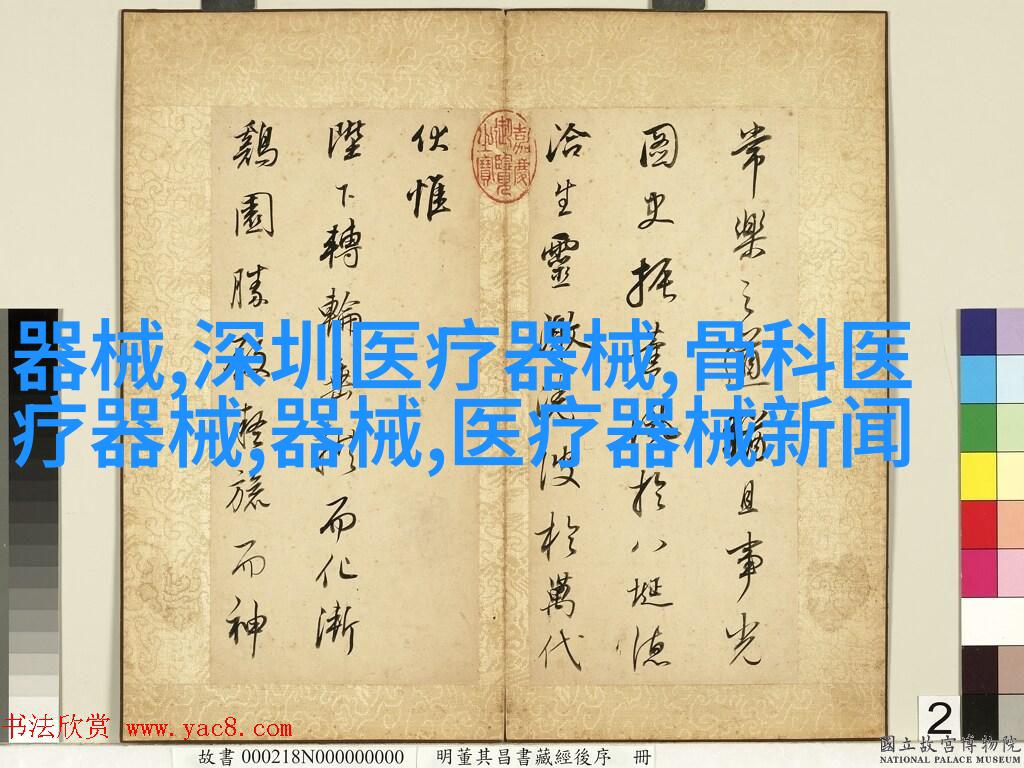 常樂之道
且事光
圖史振
於八埏德
洽生靈激
波於萬代
伏惟
陛下轉輪
而化漸
鷄園勝
旅而神
嘉慶御覽之寶
器械,深圳医疗器械,骨科医
疗器械,器械,医疗器械新闻
书法欣赏 www.yac8.com
故書 000218N000000000 明董其昌書藏經後序 冊
2
國立故宮博物院
NATIONAL PALACE MUSEUM